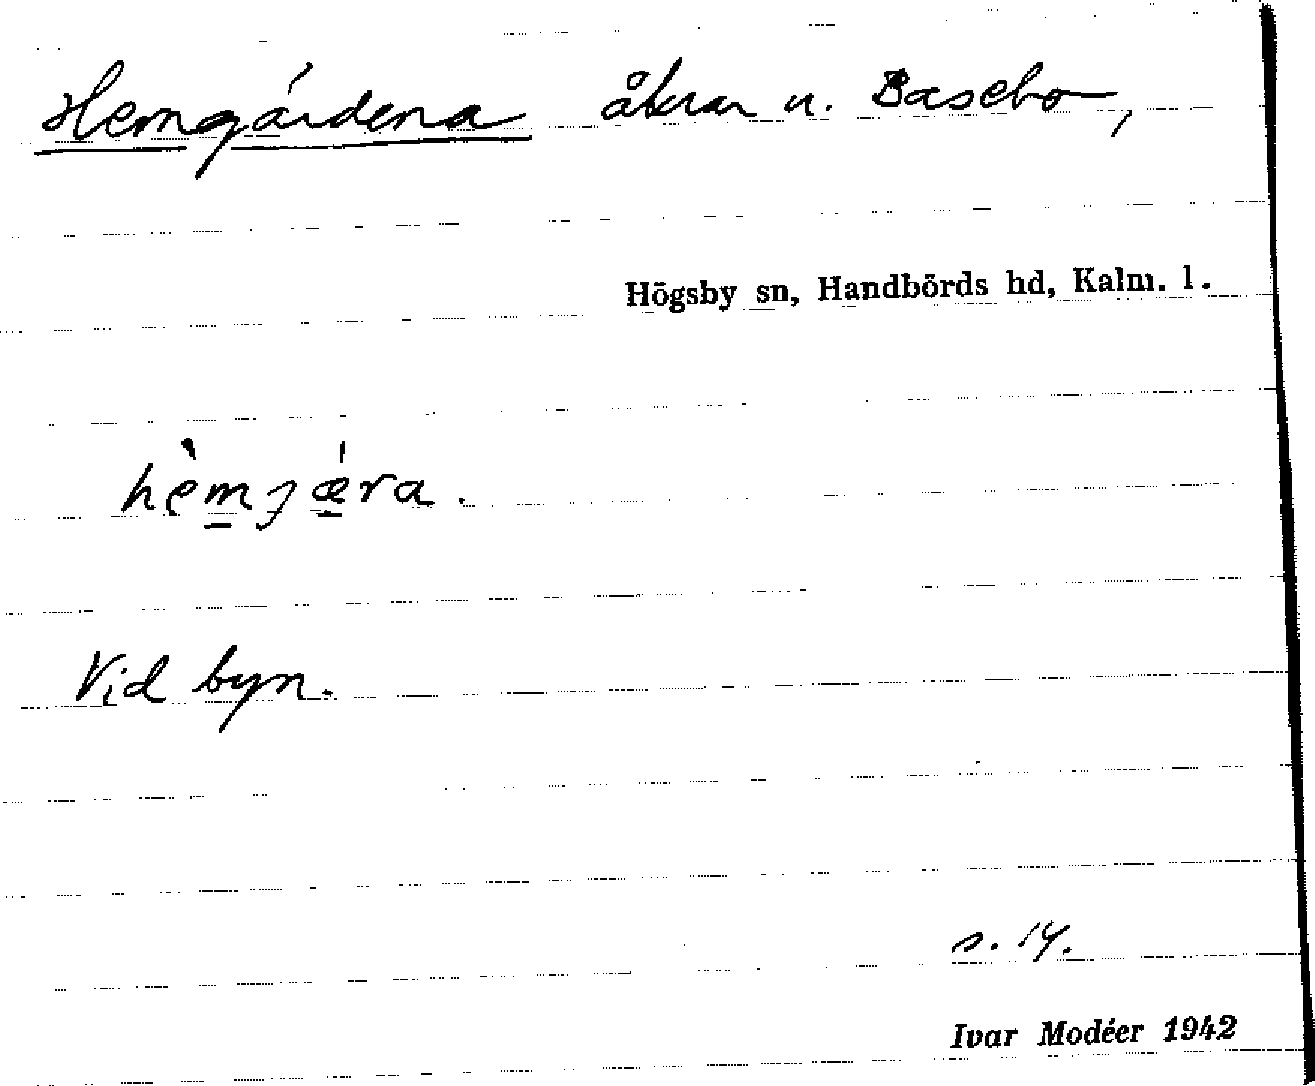 Hemgårdena åkrar n. Basebo,
Högsby sn, Handbörds hd, Kalm. l.
hèmjǽra.
Vid byn.
s. 14.
Ivar Modéer 1942